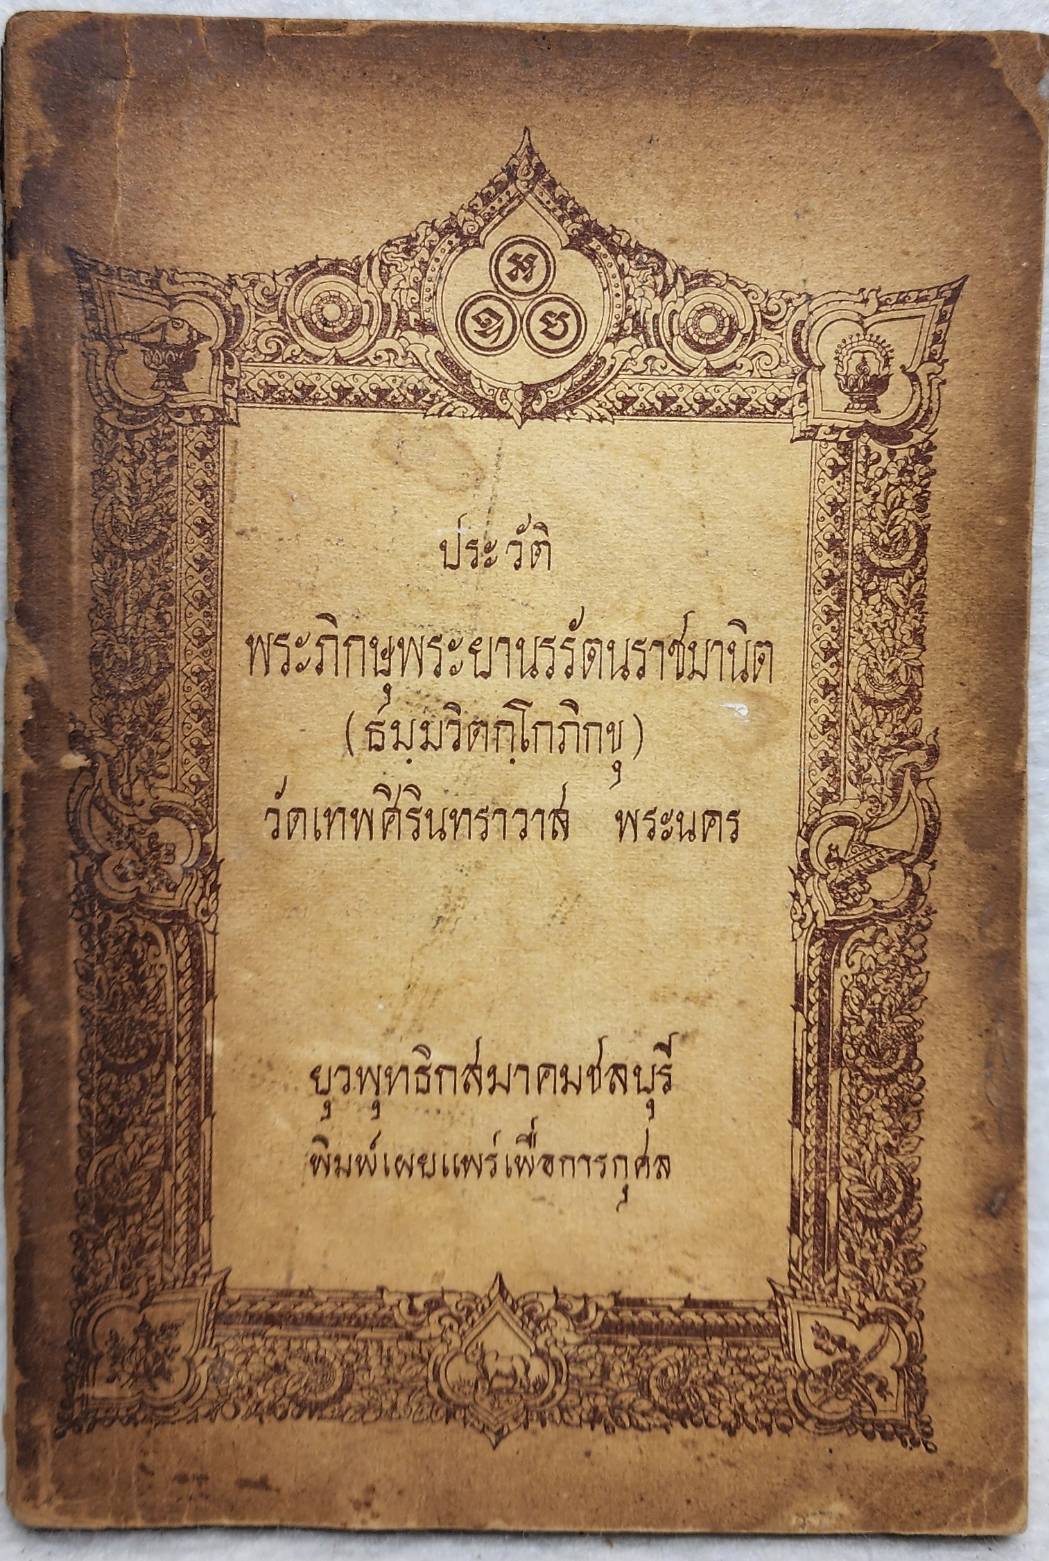 ม
ประวัติ
พระภิกษุพระยานรรัตนราชมานิต
(ธมฺมวิตกฺโกภิกขุ)
วัดเทพศิรินทราวาส พระนคร
ยุวพุทธิกสมาคมชลบุรี
พิมพ์เผยแพร่เพื่อการกุศล